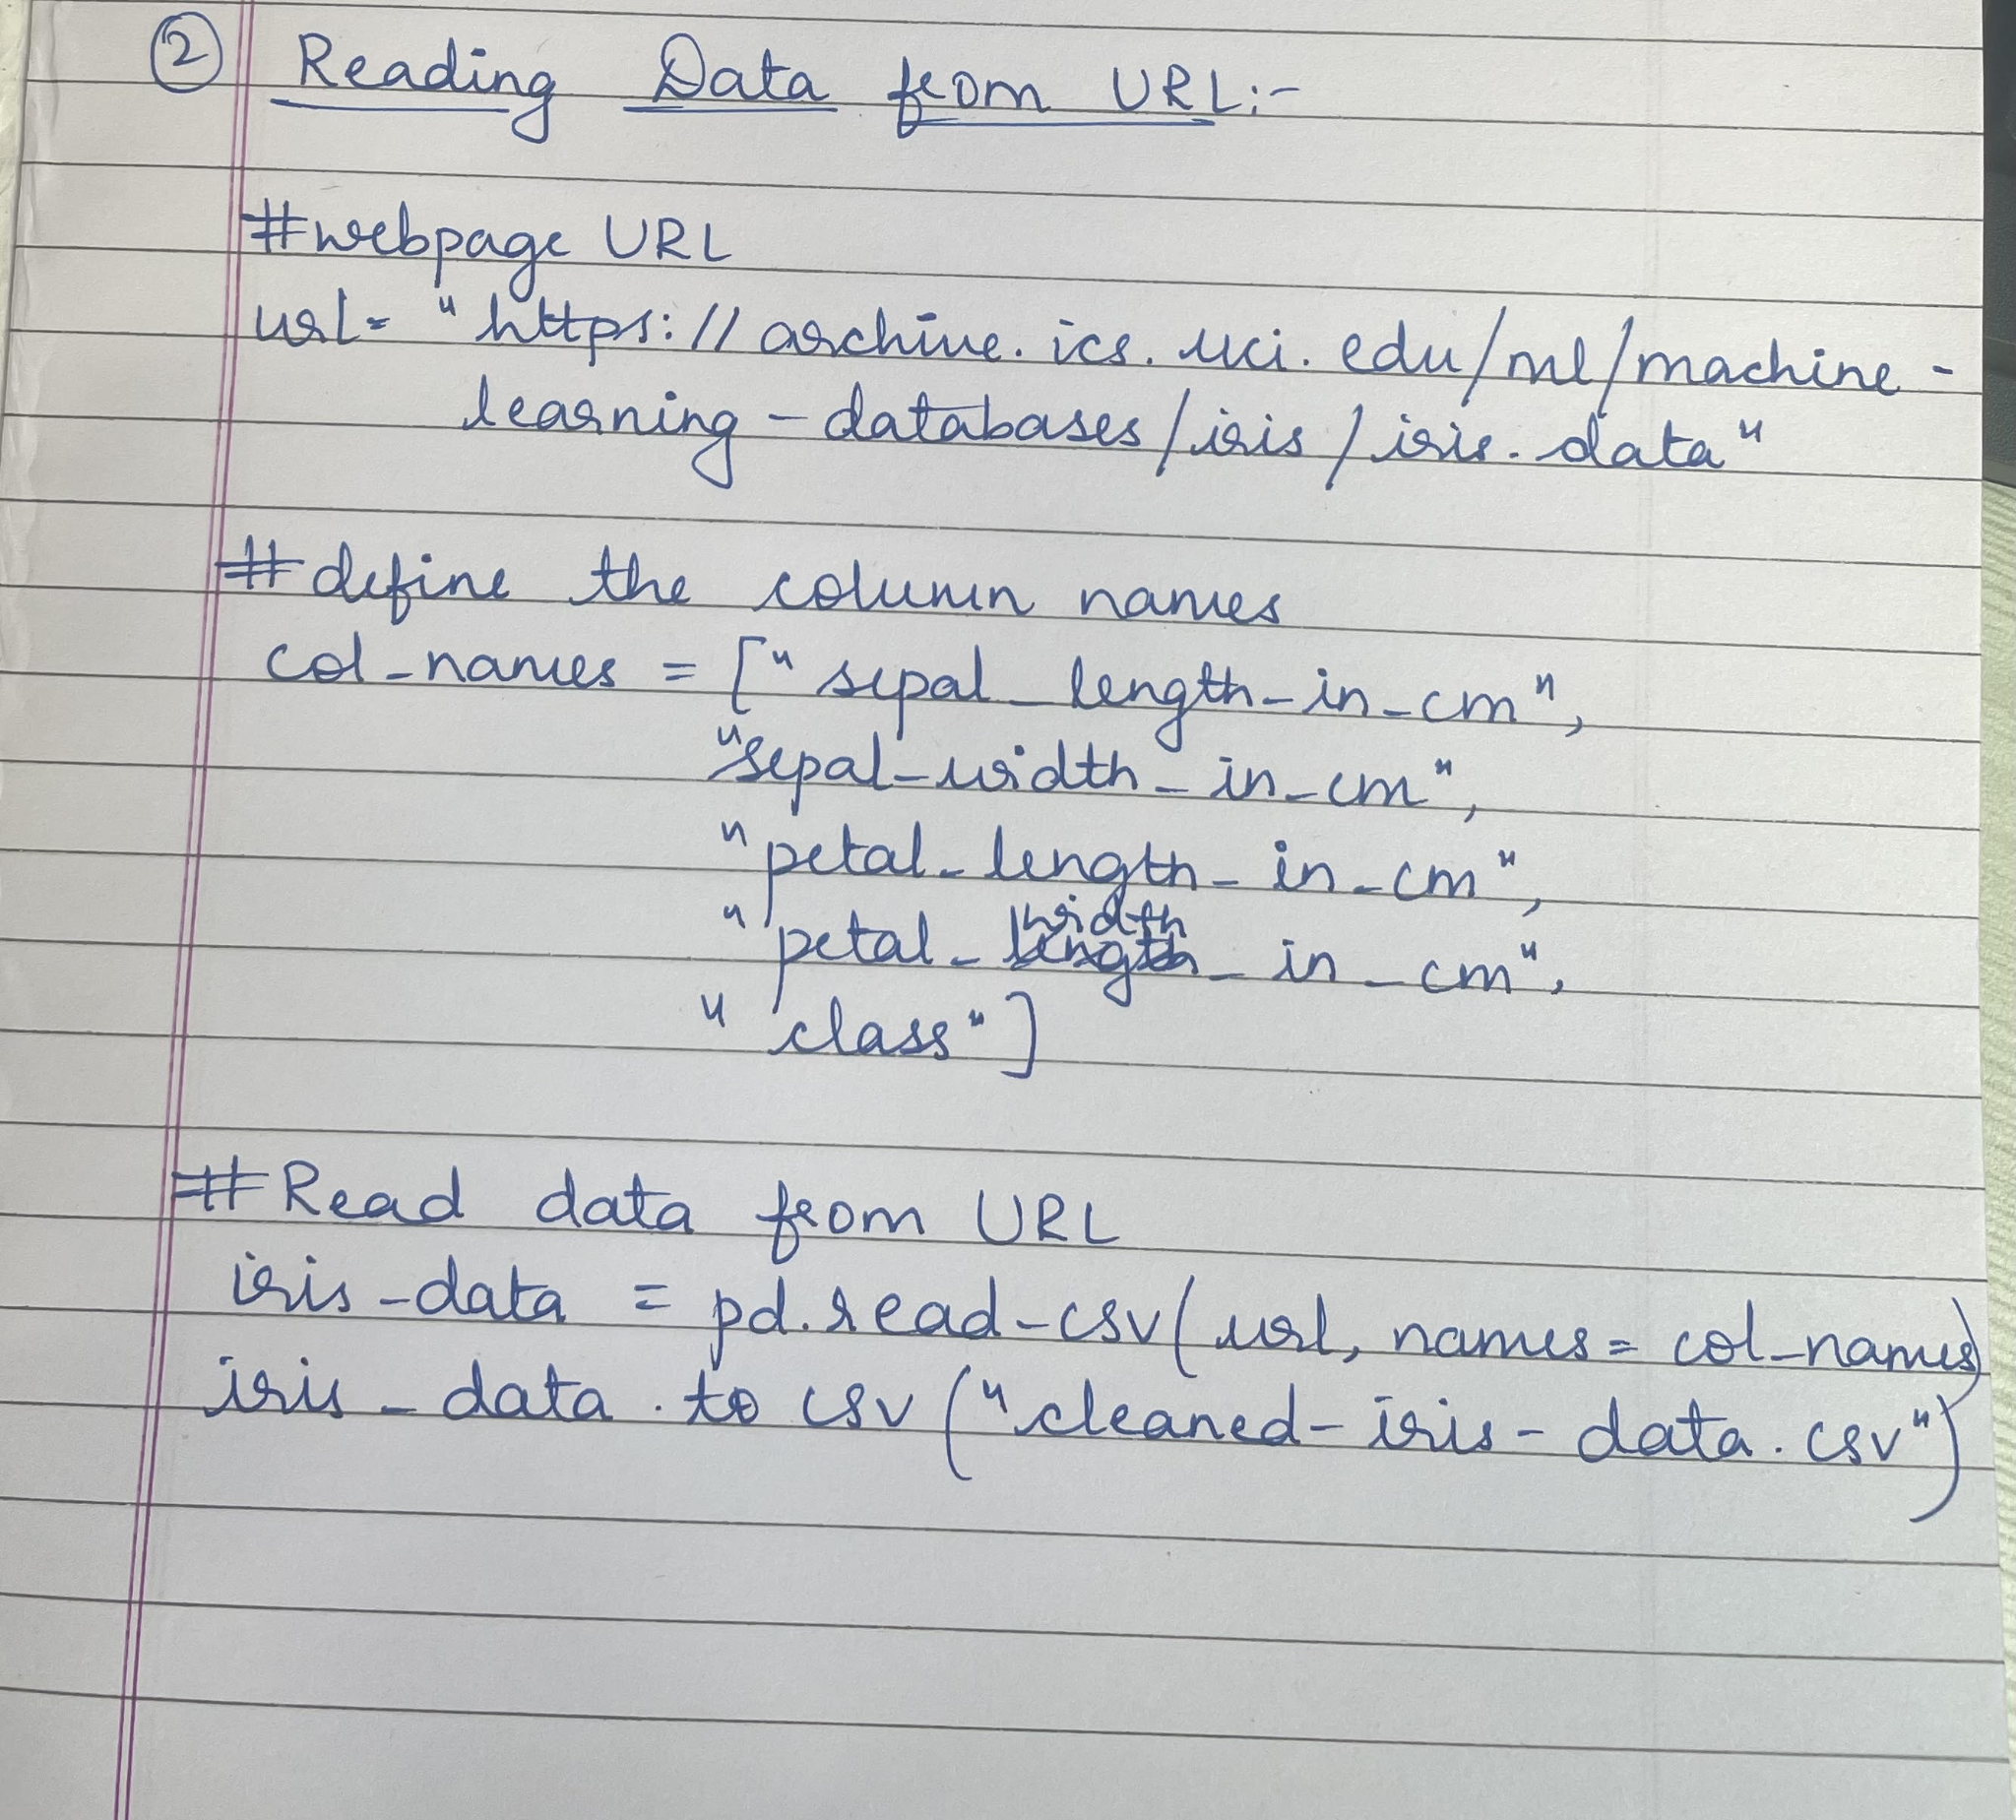 ② Reading Data from URL:-
#webpage URL
url= "https://archive.ics.uci.edu/ml/machine-
learning-databases/iris/iris.data"
#define the column names
col_names = ["sepal_length_in_cm",
"sepal_width_in_cm",
"petal_length_in_cm",
"petal_width_in_cm",
"class"]
#Read data from URL
iris_data = pd.read_csv(url, names=col_names)
iris_data.to csv("cleaned-iris-data.csv")